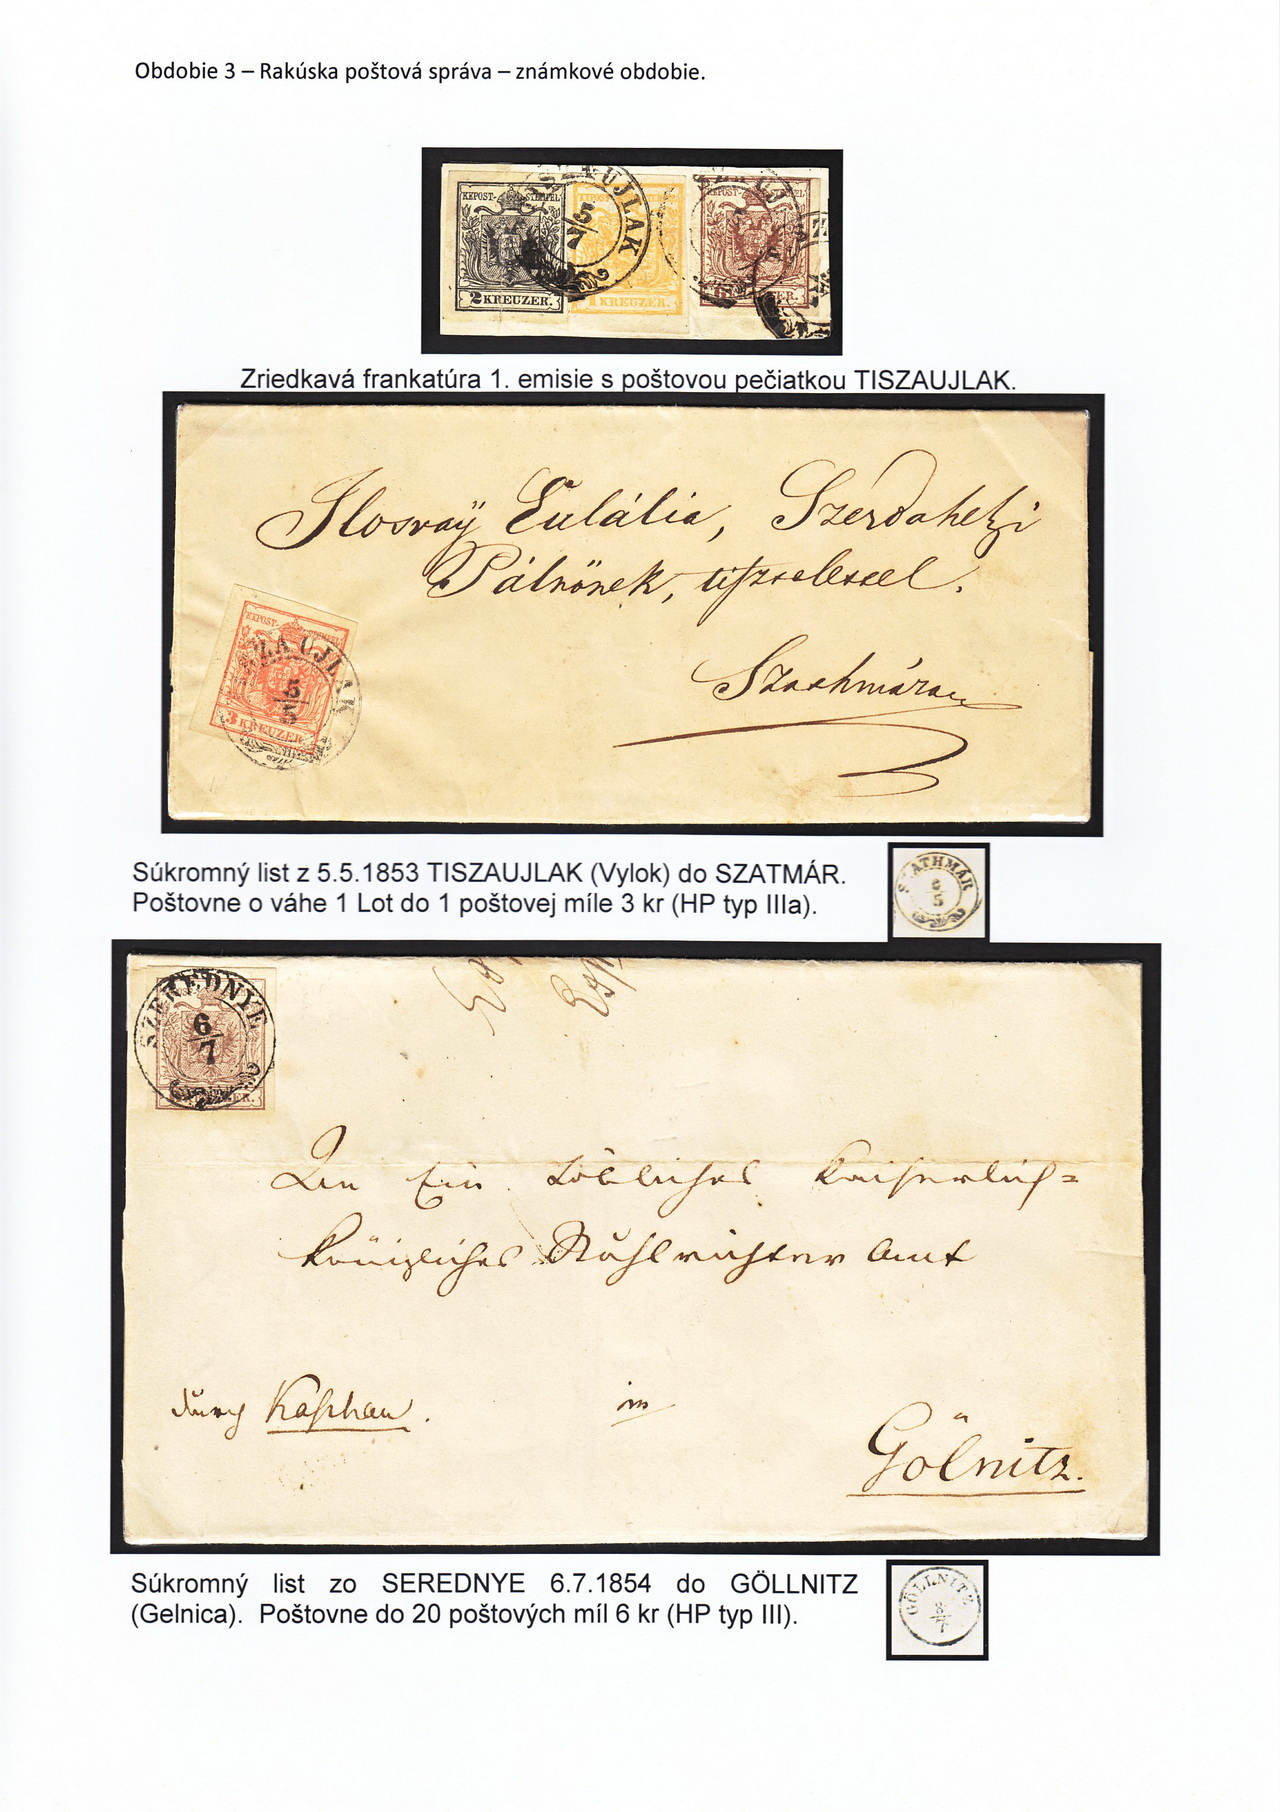 Obdobie 3 – Rakúska poštová správa – známkové obdobie.
KKPOST-STEMPEL
2 KREUZER.
TISZAUJLAK
5/7
1 KREUZER.
Zriedkavá frankatúra 1. emisie s poštovou pečiatkou TISZAUJLAK.
Ilosvaÿ Eulália, Szerdahelyi
Pálnönek, tisztelettel.
Szathmáron
KKPOST-STEMPEL
ZAUJLAK
5/5
3 KREUZER
Súkromný list z 5.5.1853 TISZAUJLAK (Vylok) do SZATMÁR.
Poštovne o váhe 1 Lot do 1 poštovej míle 3 kr (HP typ IIIa).
SZATHMÁR
6/5
SZEREDNYE
6/7
An Ein Löbliches Kaiserlich=
Königliches Stuhlrichter Amt
durch Kaschau.
in
Gölnitz.
Súkromný list zo SEREDNYE 6.7.1854 do GÖLLNITZ
(Gelnica). Poštovne do 20 poštových míl 6 kr (HP typ III).
GÖLLNITZ
8/7